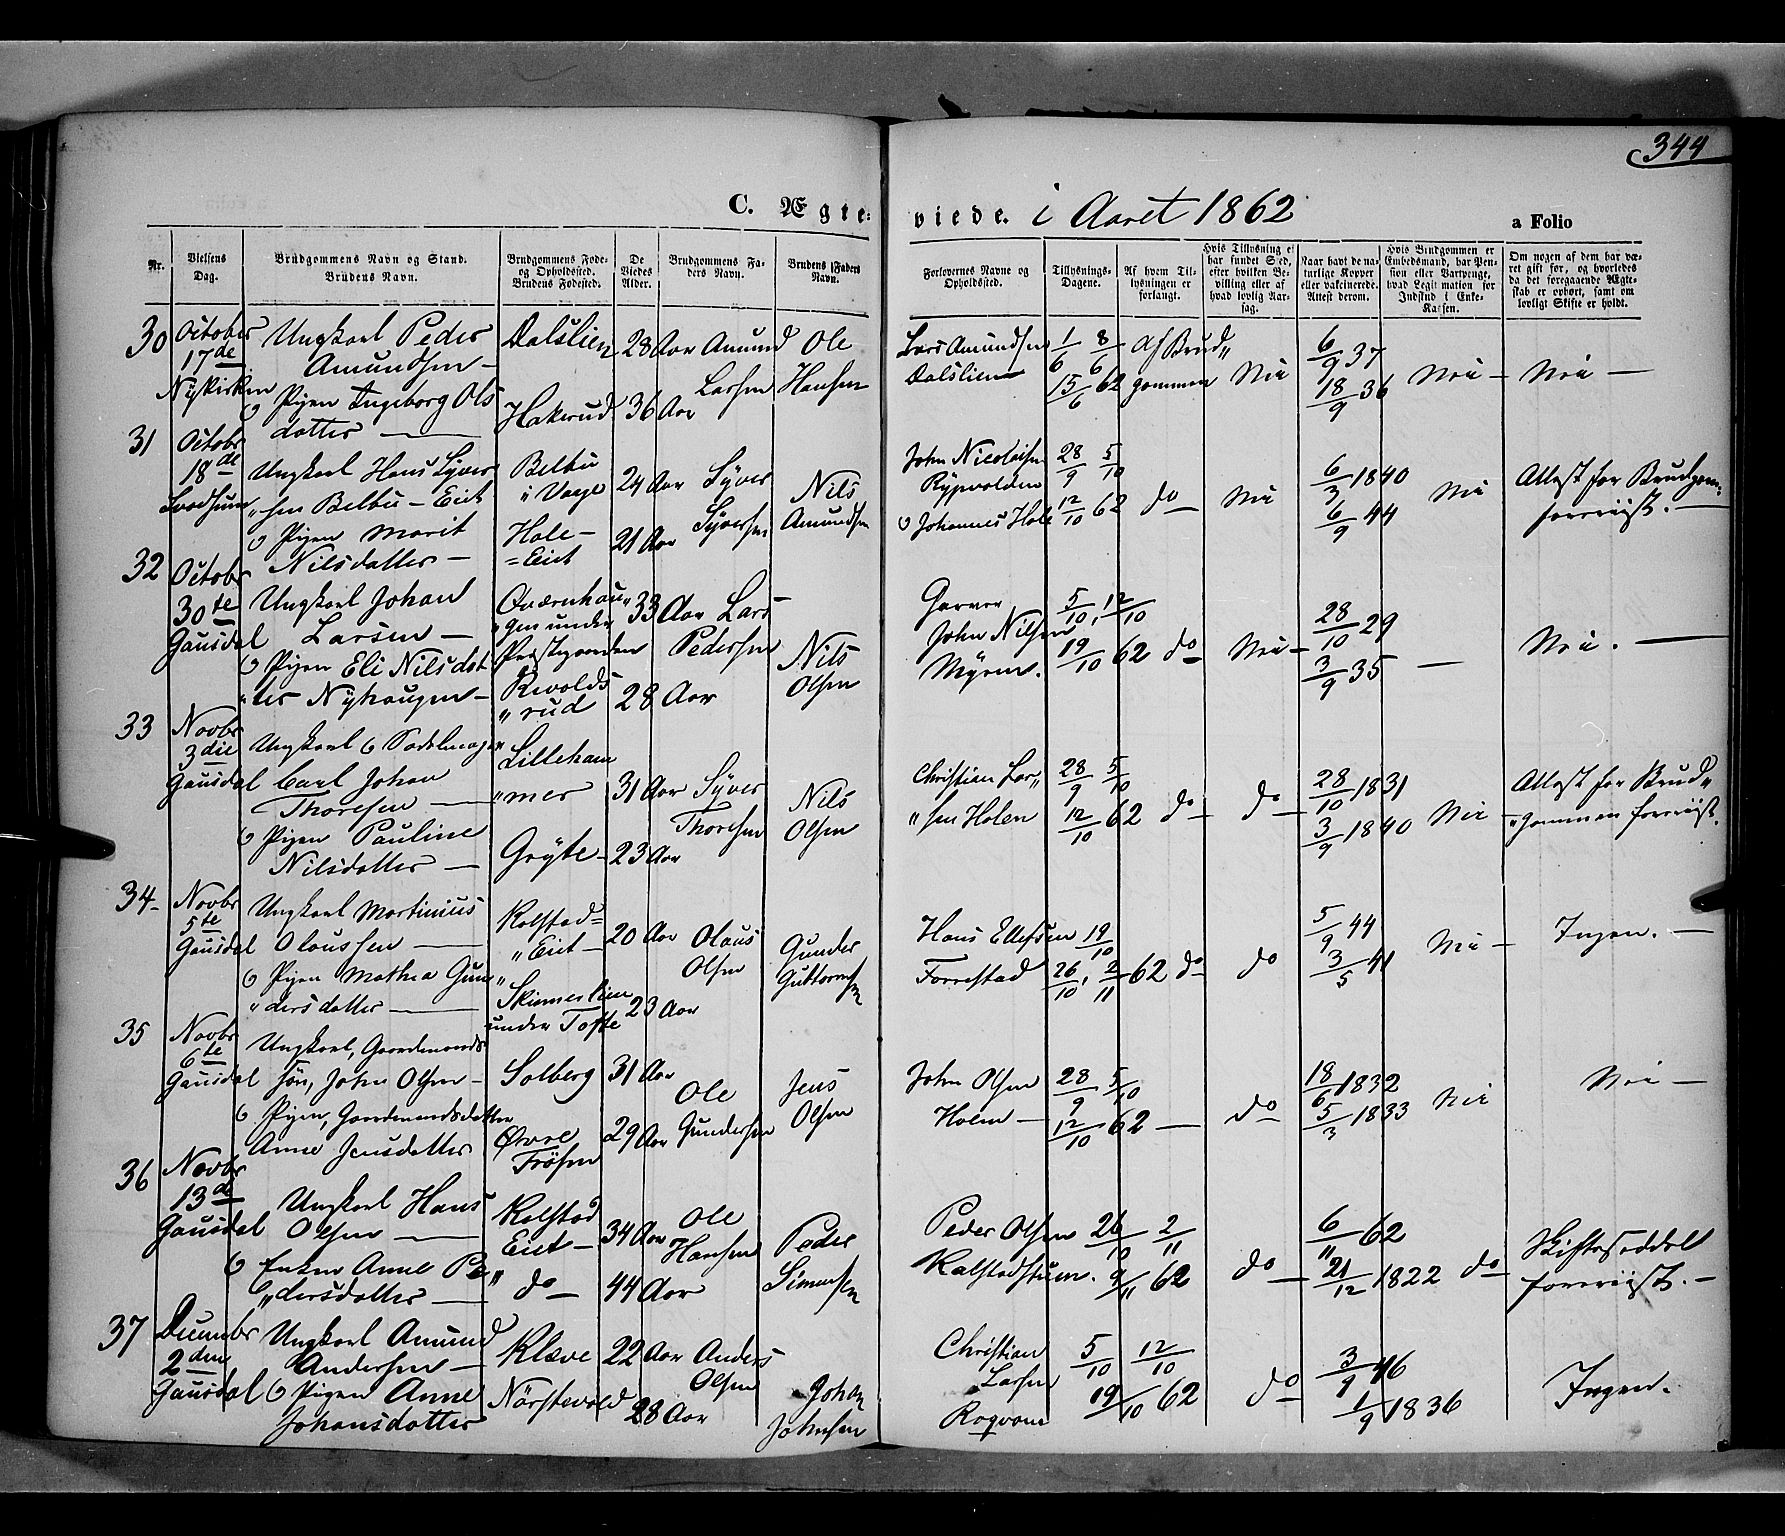 344
C. Ægte- viede. i Aaret 1862
a Folio
Nr.
Vielsens Dag.
Brudgommens Navn og Stand. Brudens Navn.
Brudgommens Føde- og Opholdssted. Brudens Fødested.
De Viedes Alder.
Brudgommens Faders Navn.
Brudens Faders Navn.
Forlovernes Navne og Opholdssted.
Tillysnings-Dagene.
Af hvem Tillysningen er forlangt.
Hvis Tillysning ei har fundet Sted, efter hvilken Bevilling eller af hvad lovlig Aarsag.
Naar havt de naturlige Kopper eller vakcinerede. Attest derom.
Hvis Brudgommen er Embedsmand, har Pension eller Vartpenge, hvad Legitimation for Indskud i Enke-Kassen.
Om nogen af dem har været gift før, og hvorledes da det foregaaende Ægteskab er ophørt, samt om lovligt Skifte er holdt.
30 October 17de Nykirken
Ungkarl Peder Amundsen –
& Pigen Ingeborg Olsdatter –
Dalslien
Hakerud
28 Aar
36 Aar
Amund Larsen
Ole Hansen
Lars Amundsen Dalslien
1/6 8/6 15/6 62
af Brudgommen
Nei
6/9 37
18/9 36
Nei –
Nei –
31 Octobr 18de
Ungkarl Hans Syversen Belbu – Eiet
& Pigen Marit Nilsdatter –
Belbu i Vage
Hole-Eiet
24 Aar
21 Aar
Syver Syversen
Nils Amundsen
John Nicolaisen
& Johannes Hole
28/9 5/10 12/10 62
do –
Nei
6/3 1840
6/9 44
Nei
Attest for Brudgom. foreviist. –
32 Octobr 30te Gausdal
Ungkarl Johan Larsen –
& Pigen Eli Nilsdatter Nyhaugen –
Qværnhaugen under Præstegaarden
Revoldsrud
33 Aar
28 Aar
Lars Pedersen
Nils Olsen
Garver John Nilsen Myren.
5/10, 12/10 19/10 62
do
Nei –
28/10 29
3/9 35
–
Nei. –
33 Novbr 3die Gausdal
Ungkarl & Sadelmager Carl Johan Thoresen –
& Pigen Pauline Nilsdatter –
Lillehammer
Grÿte –
31 Aar
23 Aar
Syver Thoresen
Nils Olsen
Christian Larsen Holen
28/9 5/10 12/10 62
do –
do –
28/10 1831
3/9 1840
Nei –
Attest for Brudgommen foreviist.
34 – Novbr 5te Gausdal
Ungkarl Martinius Olaussen –
& Pigen Mathea Gundersdatter –
Kalstad-Eiet –
Skinnerlien under Tofte
20 Aar
23 Aar
Olaus Olsen
Gunder Guttormsen
Hans Ellefsen Forrestad
19/10 26/10, 2/11 62
do
do
5/9 44
3/5 41
Nei –
Ingen. –
35 Novbr 6te Gausdal
Ungkarl, Gaardmandssøn, John Olsen –
& Pigen, Gaardmandsdatter Anne Jensdatter
Solberg
Øvre Frøsen
31 Aar
29 Aar
Ole Gundersen
Jens Olsen
John Olsen Holen –
28/9 5/10 12/10 62
–
do –
18/6 1832
5/3 1833
Nei
Nei –
36 Novbr 13de Gausdal
Ungkarl Hans Olsen –
& Enken Anne Pedersdatter –
Kalstad Eiet –
do –
34 Aar
44 Aar
Ole Hansen
Peder Simensen
Peder Olsen Kalstadstuen.
26/10 2/11 9/11 62
do –
6/11 62
21/12 1822
do –
Skifteseddel foreviist. –
37 Decembr 2den Gausdal
Ungkarl Amund Andersen –
& Pigen Anne Johansdatter
Kleve
Nørstevold
22 Aar
28 Aar
Anders Olsen
Johan Johnsen
Christian Larsen
5/10 12/10 19/10 62
do –
3/9 46
1/9 1836
Ingen.